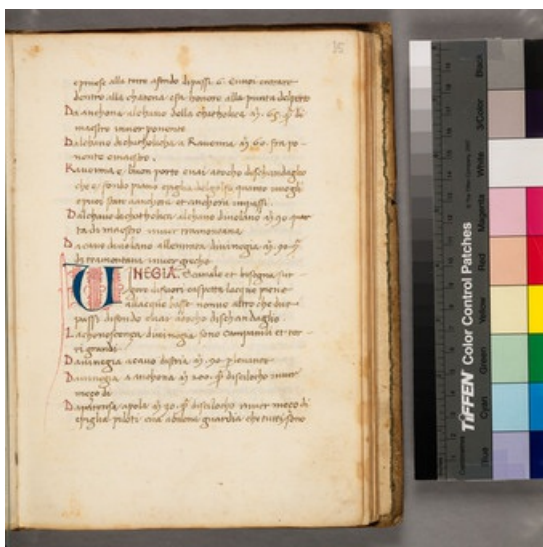 15
epuose alla torre afondo dipassi 6. Et noi entrate
dentro alla chatena esta honore alla punta delporto
Da anchona alchauo della chatholica mͥ. 65. ꝑ di
maestro inuer ponente
Dalchauo dichatholicha a Rauenna mͥ 60. fra po-
nente emaestro.
Rauenna e buon porto enai atocho dischandaglio
che fondo piano epiglia delgolfo quanto uuogli
epuoi stare aanchora
Dalchauo dichatholica alchauo mͥ 90 quar
ta di maestro inuer tramontana
Da mͥ 90 ꝑ
di tramontana inuer grecho
VINEGIA. Sc male et bisogna sur
gere difuori easpetta lacque piene
allacque basse nonuo altro che due
passi difondo enai atocho dischandaglio.
Lachonoscenza diuinegia sono campanili et tor
ri grandi
Dauinegia acauo distria mͥ. 90. pleuante
Dauinegia a anchona mͥ 200. ꝑ discilocho inuer
mezo di
Da apola mͥ 20. ꝑ discilocho inuer mezo di
epiglia piloti ena abbona guardia che tutti sono
TIFFEN Color Control Patches
© The Tiffen Company, 2007
Blue
Cyan
Green
Yellow
Red
Magenta
White
3/Color
Black
Centimetres